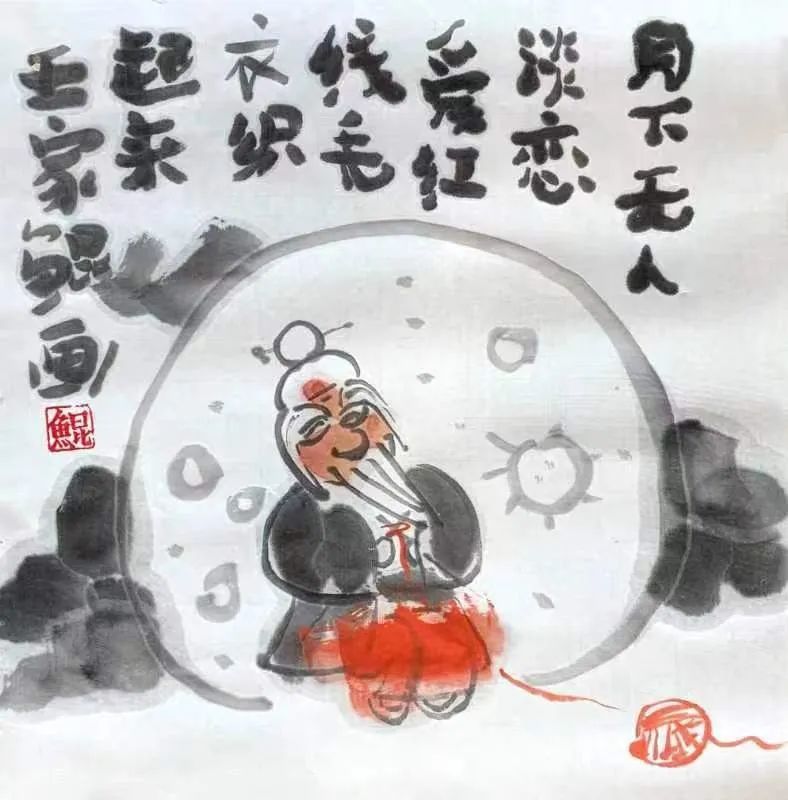 月下无人
淡恋
爱红
线毛
衣织
起来
王家鲲画
鯤